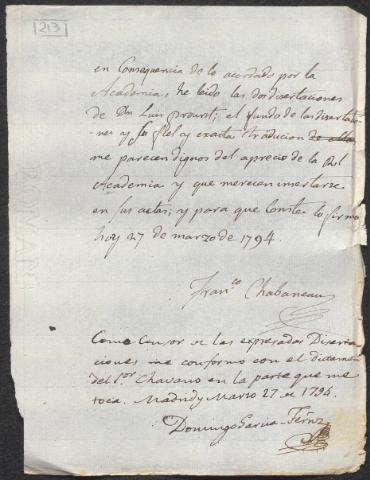 213
en Consequencia de lo acordado por la
Academia, he leido las dos disertaciones
de Dn Luis proust; el fondo de las diserta
nes y su fiel y exacta traducion de ellas
me parecen dignos del aprecio de la Rl
Academia y que merecen insertarse
en sus actas; y para que Conste lo firmo
hoy 27 de marzo de 1794.
Franco. Chabaneau
Como Censor de las expresadas Diserta
ciones me conformo con el dictamen
del Sor. Chavano en la parte que me
toca. Madrid y Marzo 27 de 1794.
Domingo Garcia Fernz